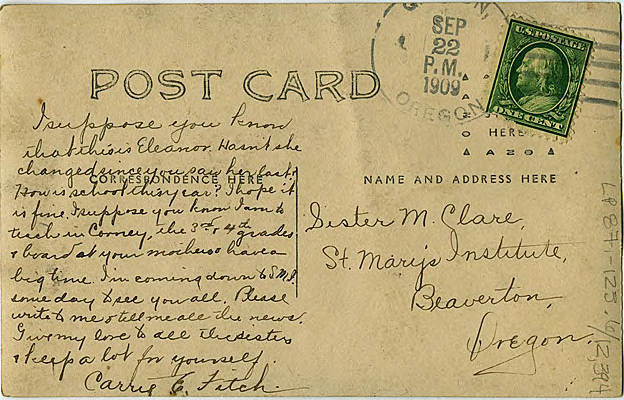 POST CARD
SEP
22
P.M.
1909
OREGON
U.S. POSTAGE
ONE CENT
HERE
CORRESPONDENCE HERE
NAME AND ADDRESS HERE
I suppose you know
that this is Eleanor. Hasn't she
changed since you saw her last?
How is school this year? I hope it
is fine. I suppose you know I am to
teach in Corney, the 3rd & 4th grades
& board at your mothers & have a
big time. I'm coming down to S.M.I.
some day to see you all. Please
write to me & tell me all the news.
Give my love to all the sisters
& keep a lot for yourself.
Carrie E. Fitch.
Sister M. Clare,
St. Mary's Institute,
Beaverton,
Oregon.
LP 87-123.